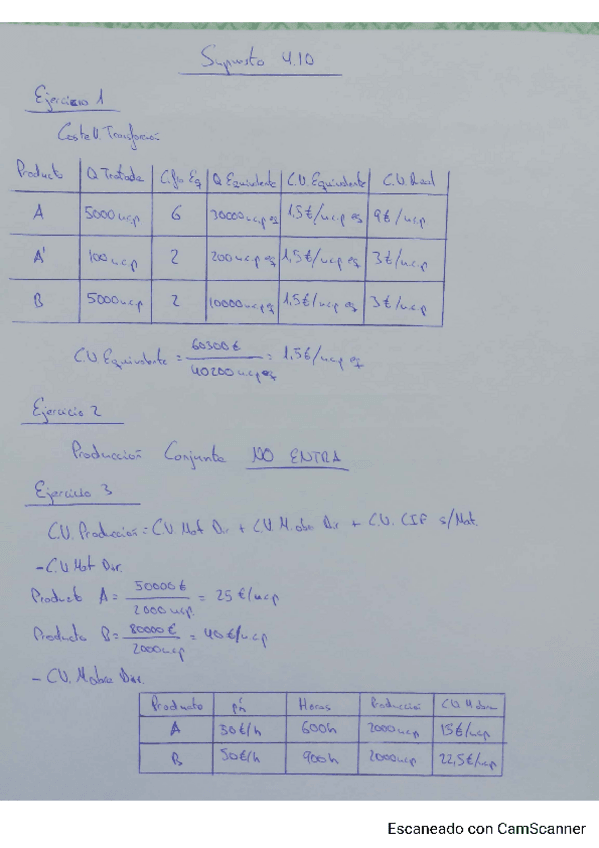 Supuesto 4.10
Ejercicio 1
Coste U. Transformación
Producto Q Tratada C.fr Eq Q Equivalente C.U. Equivalente C.U. Real
A 5000 ucp 6 30000 ucp eq 1,5€/ucp eq 9€/ucp
A' 100 ucp 2 200 ucp eq 1,5€/ucp eq 3€/ucp
B 5000 ucp 2 10000 ucp eq 1,5€/ucp eq 3€/ucp
C.U. Equivalente = 60300€ / 40200 ucp eq = 1,5€/ucp eq
Ejercicio 2
Producción Conjunta NO ENTRA
Ejercicio 3
C.U. Producción = C.U. Mat Dir + C.U. M. obra Dir + C.U. CIF s/Mat.
- C.U Mat Dir.
Producto A = 50000€ / 2000 ucp = 25€/ucp
Producto B = 80000€ / 2000 ucp = 40€/ucp
- C.U. M obra Dir.
Producto Horas Producción C.U. M obra
A 30€/h 600h 2000 ucp 15€/ucp
B 50€/h 900h 2000 ucp 22,5€/ucp
Escaneado con CamScanner